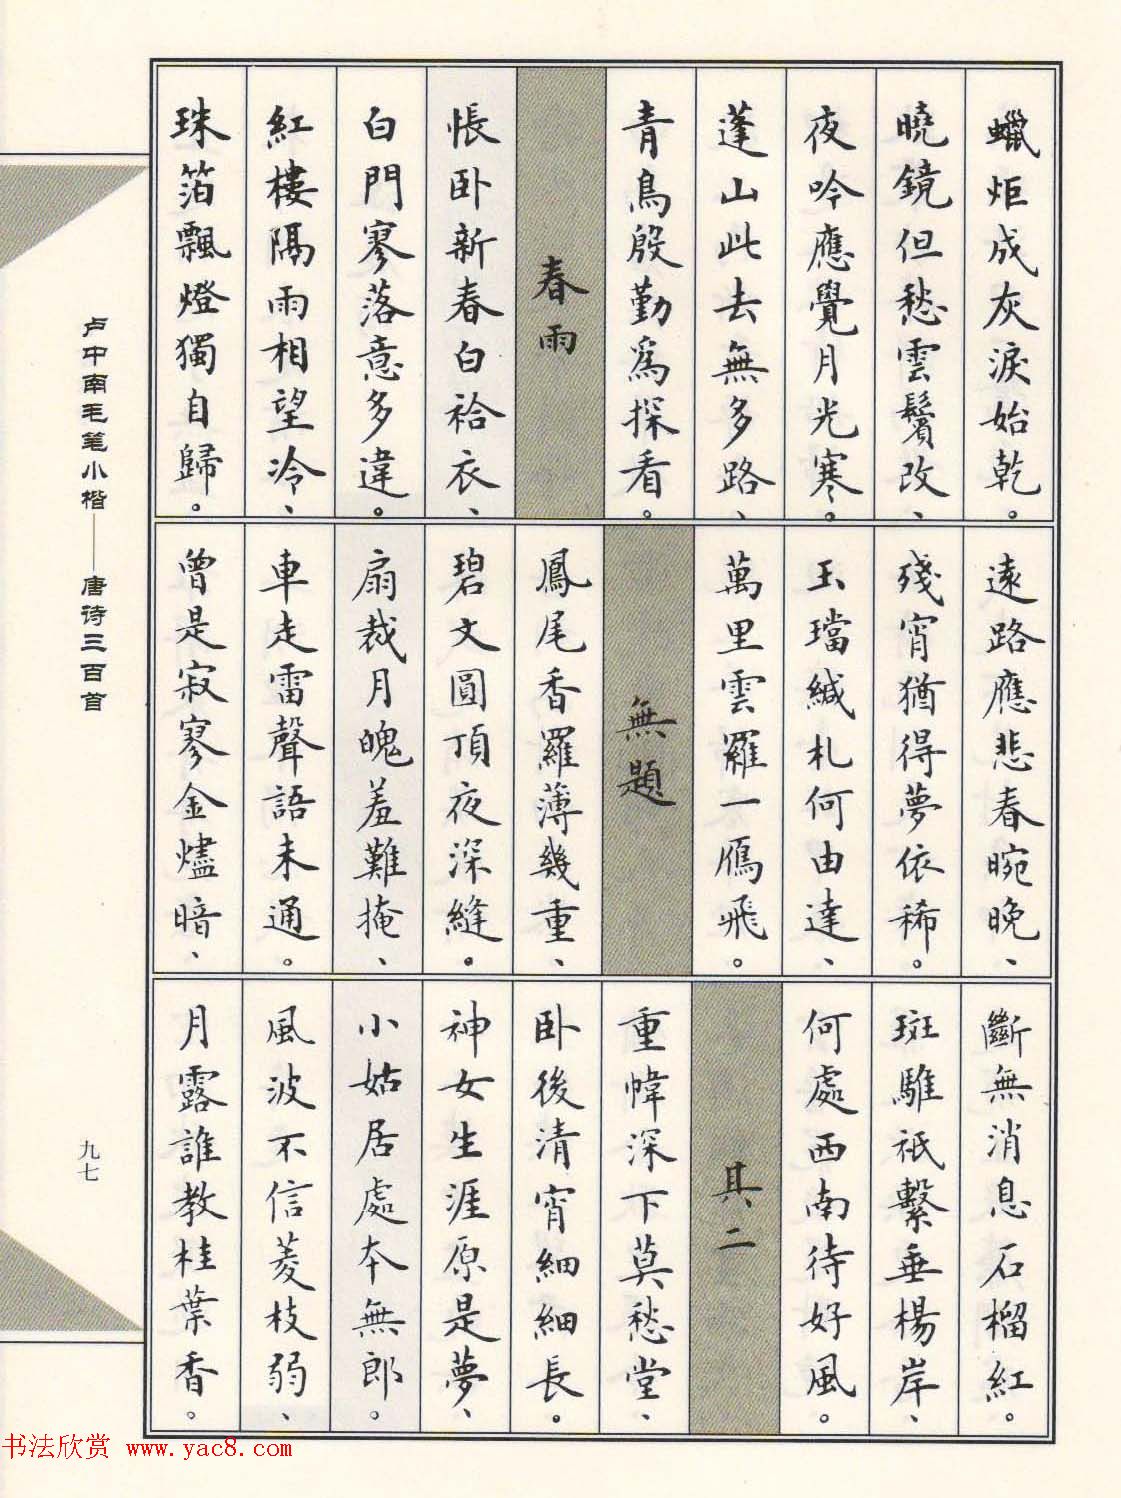 蠟炬成灰淚始乾。
曉鏡但愁雲鬢改、
夜吟應覺月光寒。
蓬山此去無多路、
青鳥殷勤為探看。
春雨
悵卧新春白袷衣、
白門寥落意多違。
紅樓隔雨相望冷、
珠箔飄燈獨自歸。
遠路應悲春晼晚、
殘宵猶得夢依稀。
玉璫緘札何由達、
萬里雲羅一鴈飛。
無題
鳳尾香羅薄幾重、
碧文圓頂夜深縫。
扇裁月魄羞難掩、
車走雷聲語未通。
曾是寂寥金燼暗、
斷無消息石榴紅。
斑騅祇繫垂楊岸、
何處西南待好風。
其二
重幃深下莫愁堂、
卧後清宵細細長。
神女生涯原是夢、
小姑居處本無郎。
風波不信菱枝弱、
月露誰教桂葉香。
卢中南毛笔小楷——唐诗三百首
九七
书法欣赏 www.yac8.com